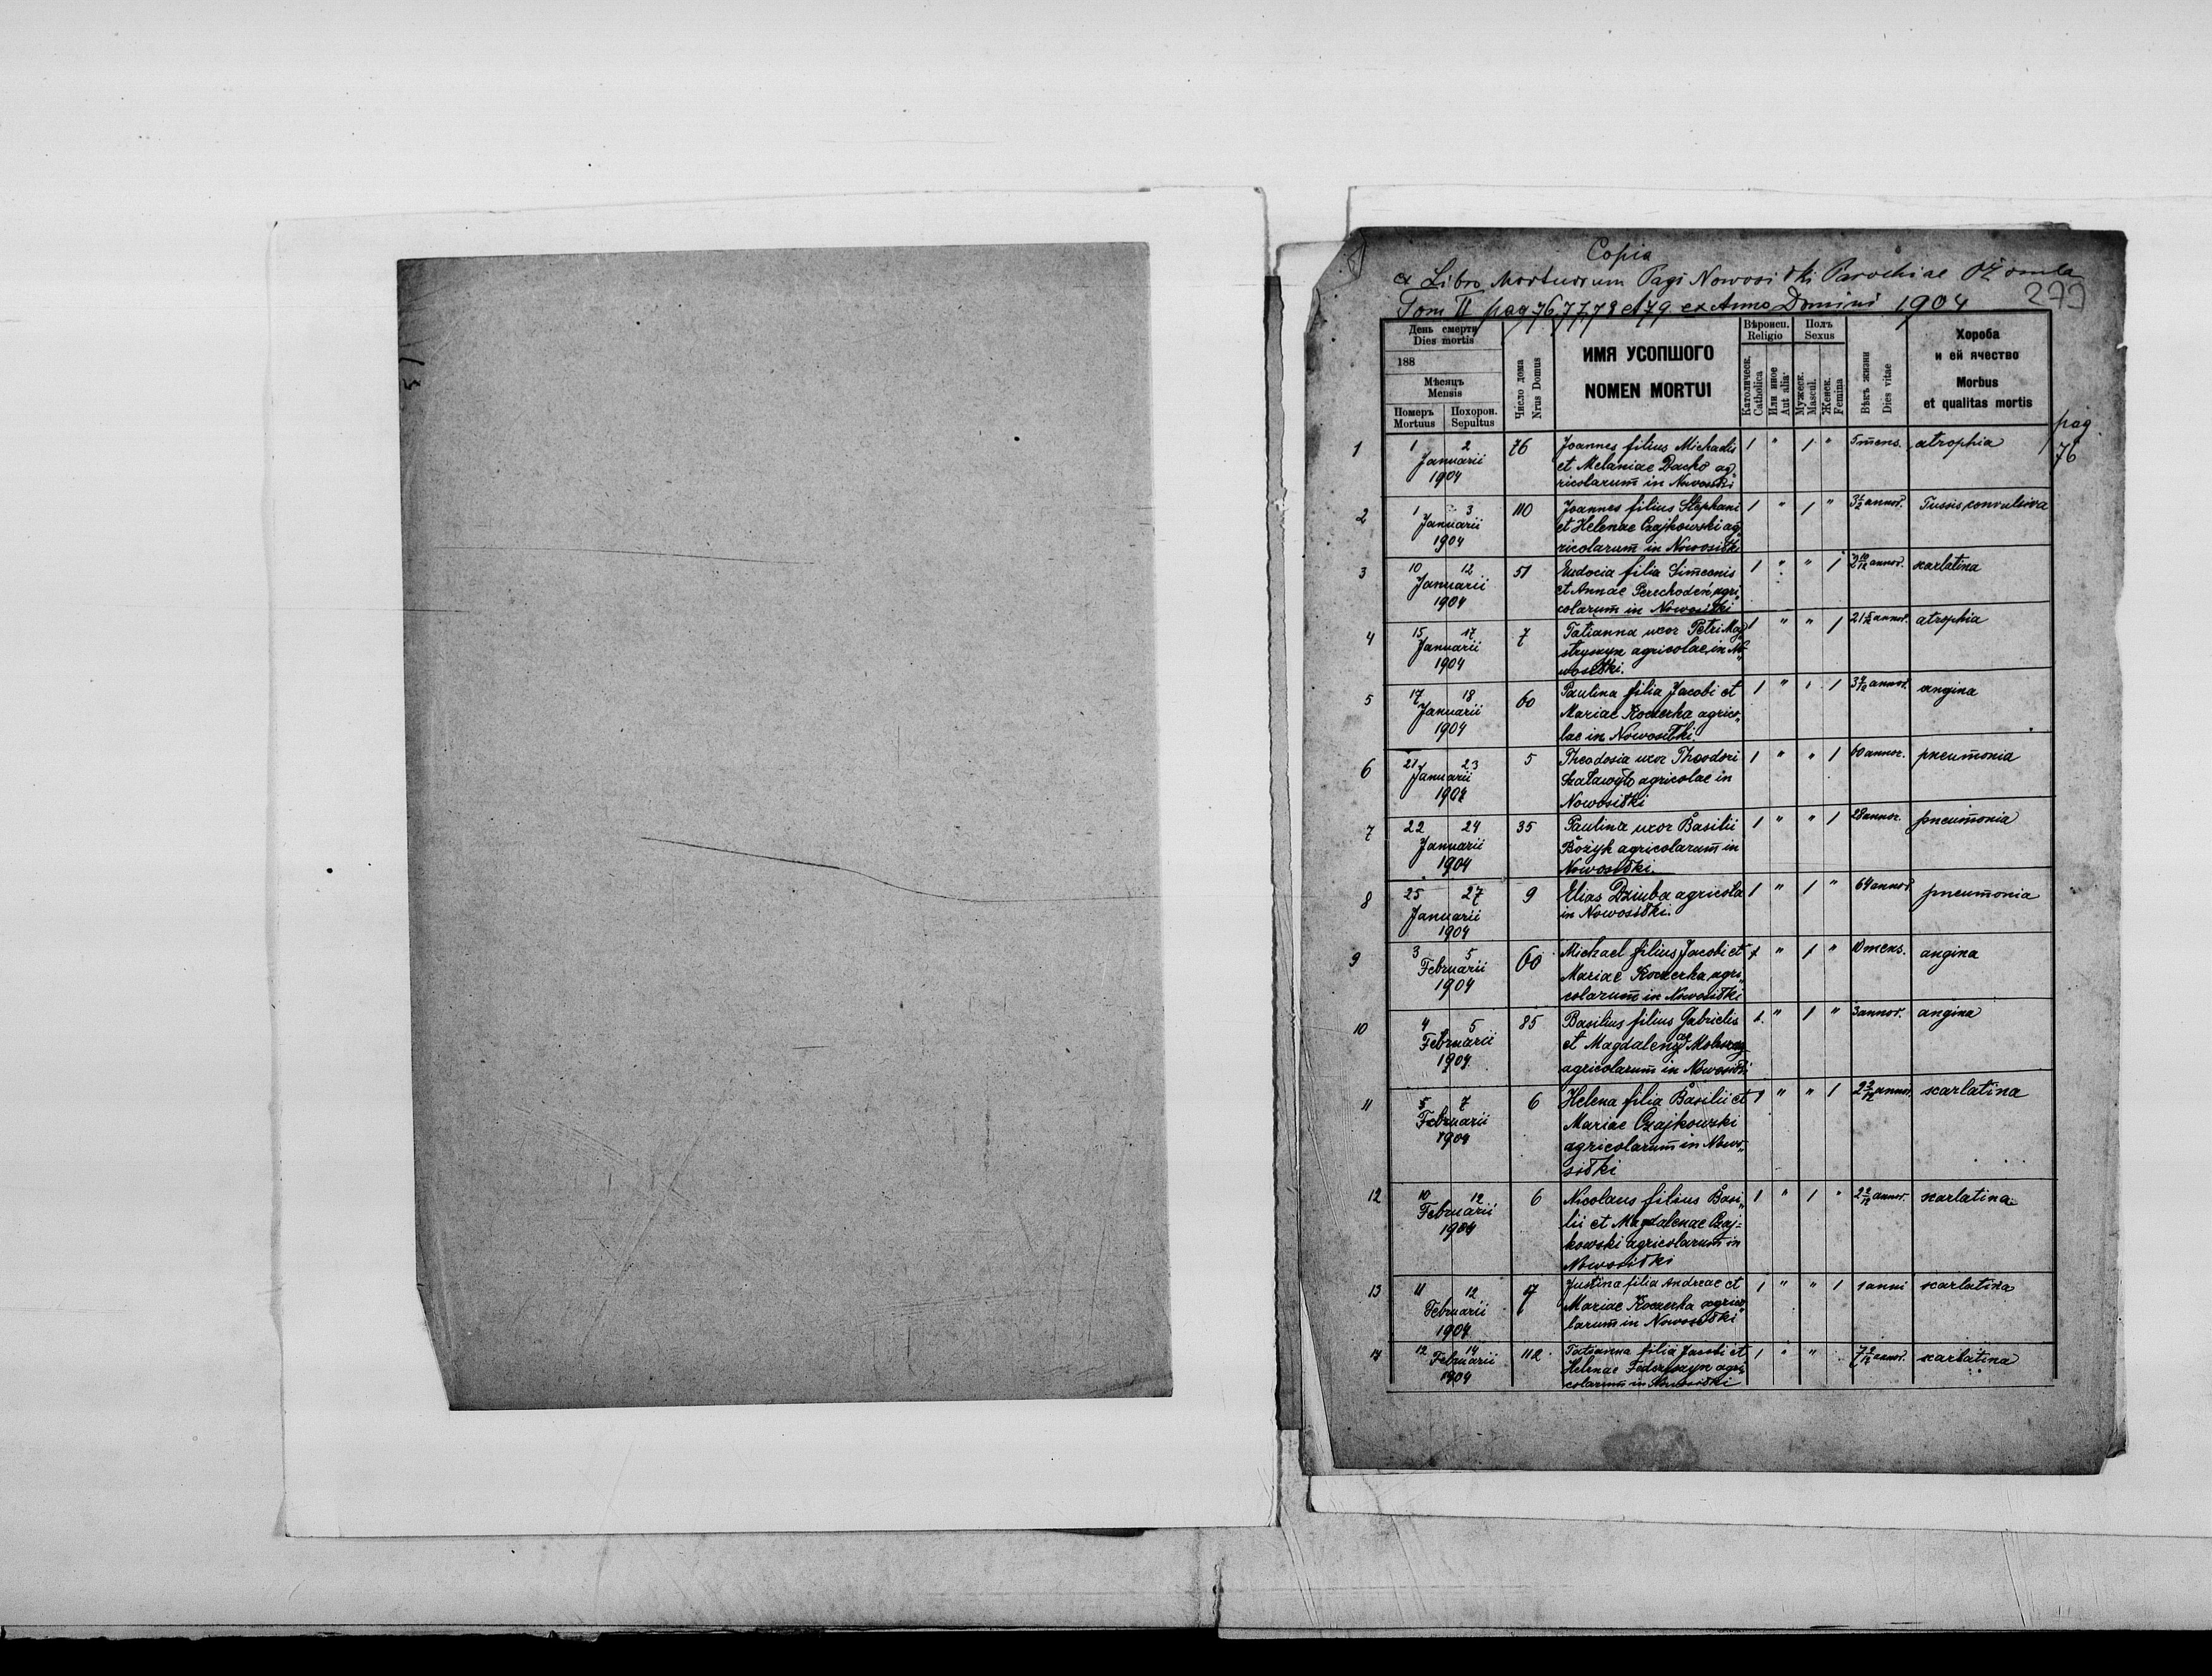 Copia
ex Libro Mortuorum Pagi Nowosiółki Parochiae Ożomla
Tom II pag 76, 77, 78 et 79. ex Anno Domini 1904
279
День смерти
Dies mortis
188
Мѣсяць
Mensis
Померъ
Mortuus
Похорон.
Sepultus
Число дома
Nrus Domus
ИМЯ УСОПШОГО
NOMEN MORTUI
Вѣроисп.
Religio
Католическ.
Catholica
Или иное
Aut alia
Полъ
Sexus
Мужеск.
Mascul.
Женск.
Femina
Вѣкъ жизни
Dies vitae
Хороба
и ей ячество
Morbus
et qualitas mortis
pag.
76
1 1 2 76 Joannes filius Michaelis 1 " 1 " 5 mens. atrophia
Januarii et Melaniae Dacko ag„
1904 ricolarum in Nowosiółki
2 1 3 110 Joannes filius Stephani 1 " 1 " annor. Tussis convulsiva
Januarii et Helenae Czajkowski ag„
1904 ricolarum in Nowosiółki
3 10 12 51 Eudocia filia Simeonis 1 " " 1 2 10/12 annor. scarlatina
Januarii et Annae Perechodeń agri„
1904 colarum in Nowosiółki
4 15 17 7 Tatianna uxor Petri 1 " " 1 annor. atrophia
Januarii agricolae in No„
1904 wosiółki.
5 17 18 60 Paulina filia Jacobi et 1 " 1 annor. angina
Januarii Mariae Koczerha agrico„
1904 lae in Nowosiółki.
6 21 23 5 Theodosia uxor Theodori 1 " " 1 60 annor. pneumonia
Januarii agricolae in
1904 Nowosiółki
7 22 24 35 Paulina uxor Basilii 1 " " 1 28 annor. pneumonia
Januarii Bożyk agricolarum in
1904 Nowosiółki.
8 25 27 9 Elias Dziuba agricola 1 " 1 " 64 annor. pneumonia
Januarii in Nowosiółki.
1904
9 3 5 60 Michael filius Jacobi et 1 " 1 " 10 mens. angina
Februarii Mariae Koczerha agri„
1904 colarum in Nowosiółki
10 4 5 85 Basilius filius Gabrielis 1. " 1 " 3 annor. angina
Februarii et Magdalenae
1904. agricolarum in Nowosiółki
11 5 7 6 Helena filia Basilii et 1 " " 1 2 2/12 annor. scarlatina
Februarii Mariae Czajkowski
1904 agricolarum in Nowo„
siółki
12 10 12 6 Nicolaus filius Basi„ 1 " 1 " 2 2/12 annor. scarlatina
Februarii lii et Magdalenae Czaj=
1904 kowski agricolarum in
Nowosiółki
13 11 12 Justina filia Andreae et 1 " " 1 1 anni scarlatina
Februarii Mariae Koczerha agrico„
1904. larum in Nowosiółki
14 12 14 112 Tatianna filia Jacobi et 1 " " annor. scarlatina
Februarii Helenae Fedoryszyn agri„
1904 colarum in Nowosiółki